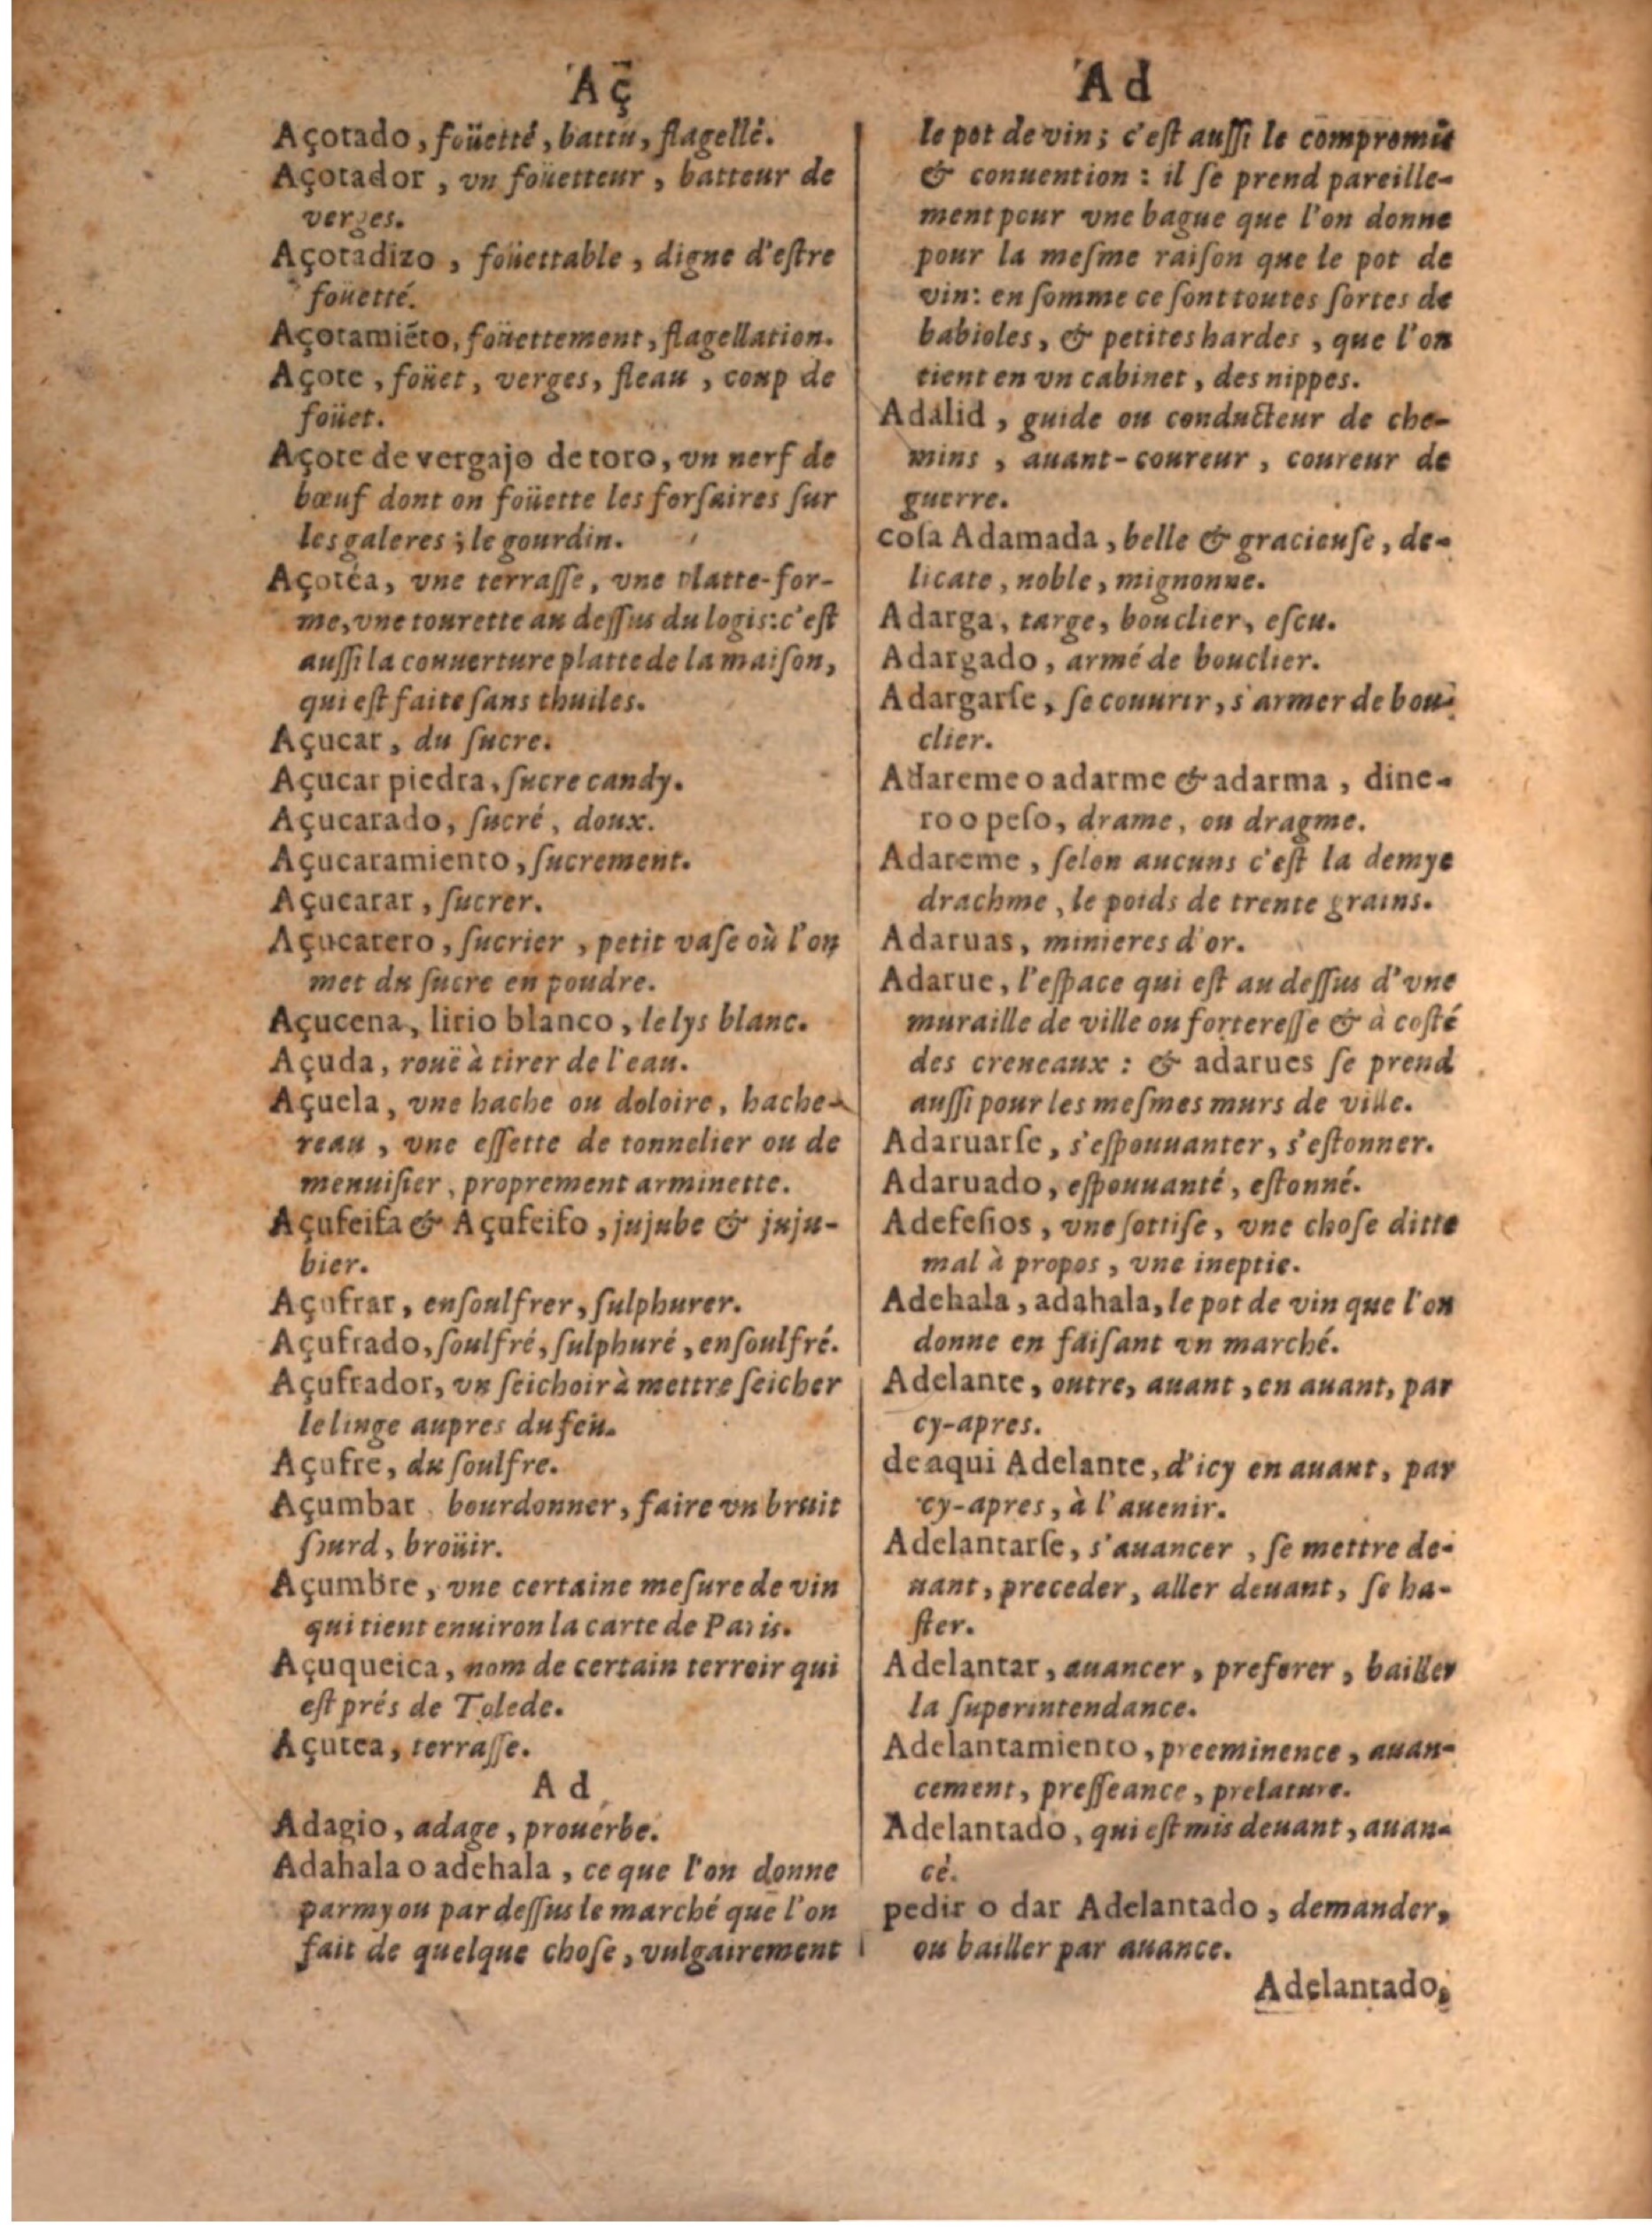 Aç
Açotado, foüetté, battu, flagellé.
Açotador, vn foüetteur, batteur de
verges.
Açotadizo, foüettable, digne d'eſtre
foüetté.
Açotamiẽto, foüettement, flagellation.
Açote, foüet, verges, fleau, coup de
foüet.
Açote de vergajo de toro, vn nerf de
bœuf dont on foüette les forſaires ſur
les galeres; le gourdin.
Açotéa, vne terraſſe, vne platte-for-
me, vne tourette au deſſus du logis: c'eſt
auſſi la couuerture platte de la maiſon,
qui eſt faite ſans thuiles.
Açucar, du ſucre.
Açucar piedra, ſucre candy.
Açucarado, ſucré, doux.
Açucaramiento, ſucrement.
Açucarar, ſucrer.
Açucarero, ſucrier, petit vaſe où l'on
met du ſucre en poudre.
Açucena, lirio blanco, le lys blanc.
Açuda, rouë à tirer de l'eau.
Açuela, vne hache ou doloire, hache-
reau, vne eſſette de tonnelier ou de
menuiſier, proprement arminette.
Açufeifa & Açufeifo, jujube & juju-
bier.
Açufrar, enſoulfrer, ſulphurer.
Açufrado, ſoulfré, ſulphuré, enſoulfré.
Açufrador, vn ſeichoir à mettre ſeicher
le linge aupres du feu.
Açufre, du ſoulfre.
Açumbar, bourdonner, faire vn bruit
ſourd, broüir.
Açumbre, vne certaine meſure de vin
qui tient enuiron la carte de Paris.
Açuqueica, nom de certain terroir qui
eſt prés de Tolede.
Açutea, terraſſe.
Ad
Adagio, adage, prouerbe.
Adahala o adehala, ce que l'on donne
parmy ou par deſſus le marché que l'on
fait de quelque choſe, vulgairement
Ad
le pot de vin; c'eſt auſſi le compromis
& conuention: il ſe prend pareille-
ment pour vne bague que l'on donne
pour la meſme raiſon que le pot de
vin: en ſomme ce ſont toutes ſortes de
babioles, & petites hardes, que l'on
tient en vn cabinet, des nippes.
Adalid, guide ou conducteur de che-
mins, auant-coureur, coureur de
guerre.
coſa Adamada, belle & gracieuſe, de-
licate, noble, mignonne.
Adarga, targe, bouclier, eſcu.
Adargado, armé de bouclier.
Adargarſe, ſe couurir, s'armer de bou-
clier.
Adareme o adarme & adarma, dine-
ro o peſo, drame, ou dragme.
Adareme, ſelon aucuns c'eſt la demye
drachme, le poids de trente grains.
Adaruas, minieres d'or.
Adarue, l'eſpace qui eſt au deſſus d'vne
muraille de ville ou fortereſſe & à coſté
des creneaux: & adarues ſe prend
auſſi pour les meſmes murs de ville.
Adaruarſe, s'eſpouuanter, s'eſtonner.
Adaruado, eſpouuanté, eſtonné.
Adefeſios, vne ſottiſe, vne choſe ditte
mal à propos, vne ineptie.
Adehala, adahala, le pot de vin que l'on
donne en faiſant vn marché.
Adelante, outre, auant, en auant, par
cy-apres.
de aqui Adelante, d'icy en auant, par
cy-apres, à l'auenir.
Adelantarſe, s'auancer, ſe mettre de-
uant, preceder, aller deuant, ſe ha-
ſter.
Adelantar, auancer, preferer, bailler
la ſuperintendance.
Adelantamiento, preeminence, auan-
cement, preſſeance, prelature.
Adelantado, qui eſt mis deuant, auan-
cé.
pedir o dar Adelantado, demander,
ou bailler par auance.
Adelantado,